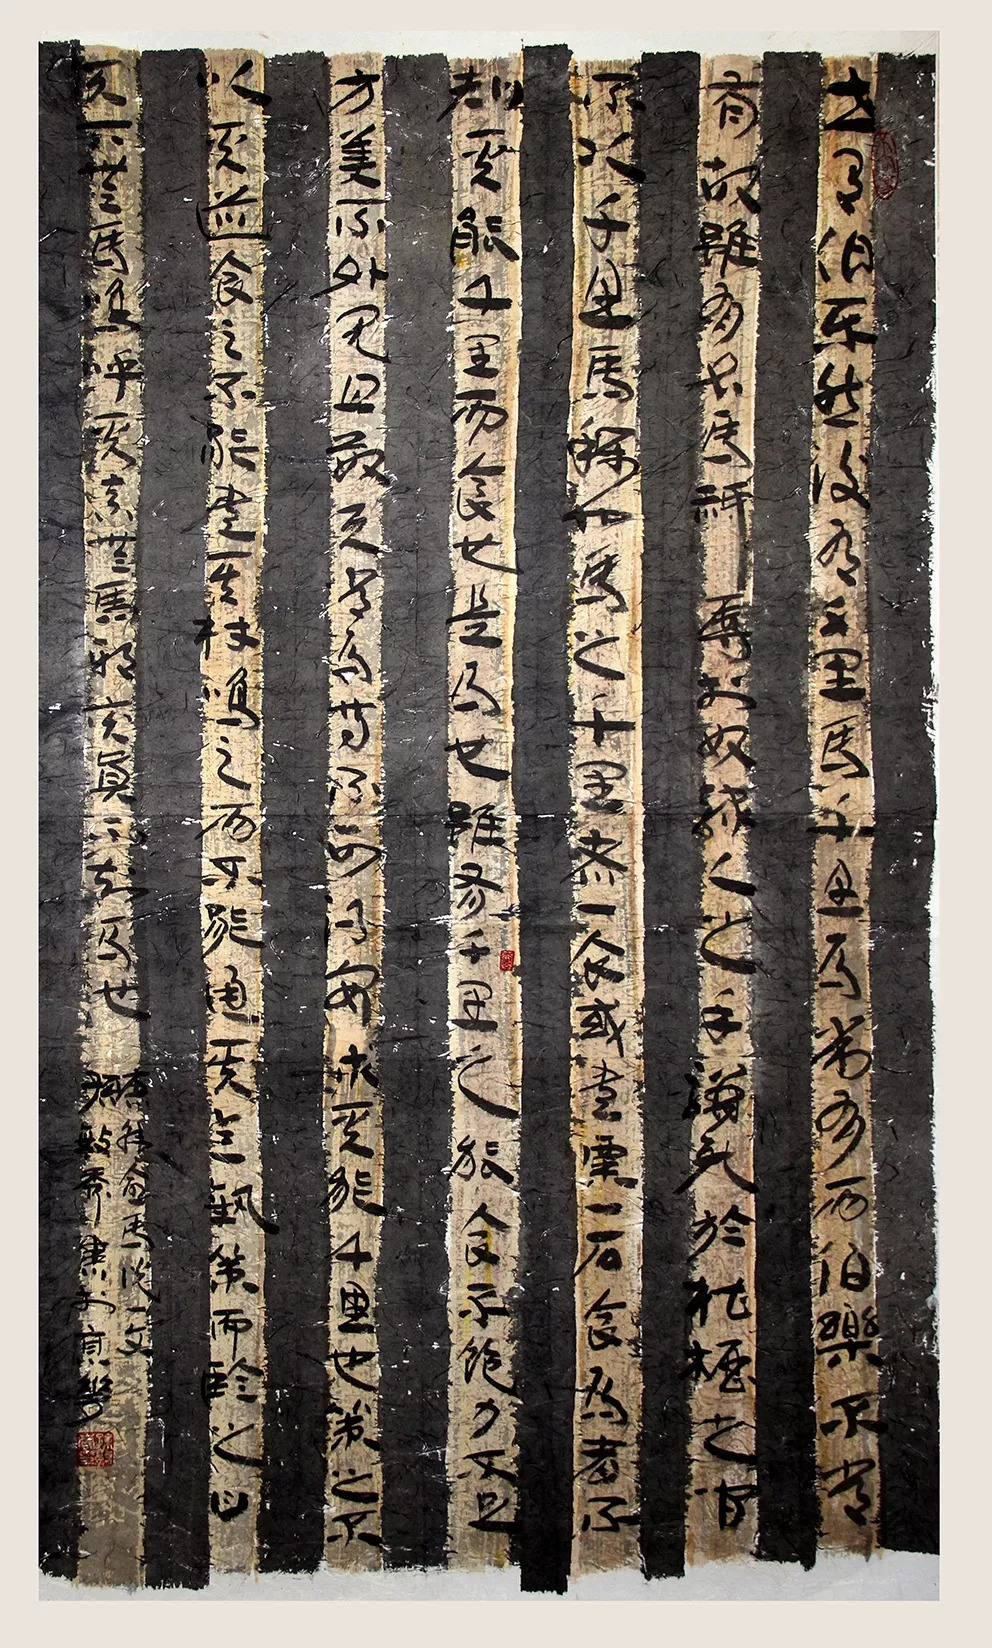 世有伯乐然後有千里馬千里馬常有而伯樂不常
有故雖有名馬祇辱於奴隸人之手駢死於槽櫪之間
不以千里馬稱也馬之千里者一食或盡粟一石食馬者不
知其能千里而食也是馬也雖有千里之能食不飽力不足
才美不外見且欲與常馬等不可得安求其能千里也策之不
以其道食之不能盡其材鳴之而不能通其意執策而臨之曰
天下無馬嗚呼其真無馬邪其真不知馬也
韓愈馬说一文